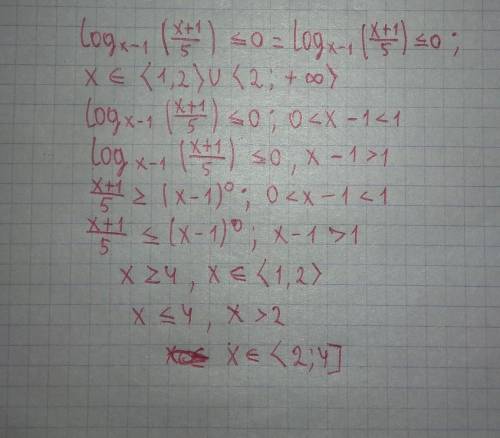 log_{x-1} (\frac{x+1}{5}) ≤ 0 = log_{x-1} (\frac{x+1}{5}) ≤ 0 ;
x ∈ ⟨1,2⟩ ∪ ⟨2; +∞⟩
log_{x-1} (\frac{x+1}{5}) ≤ 0 ; 0 < x - 1 < 1
log_{x-1} (\frac{x+1}{5}) ≤ 0 , x - 1 > 1
\frac{x+1}{5} ≥ (x-1)^0 ; 0 < x - 1 < 1
\frac{x+1}{5} ≤ (x-1)^0 ; x - 1 > 1
x ≥ 4 , x ∈ ⟨1,2⟩
x ≤ 4 , x > 2
x ∈ ⟨2;4]